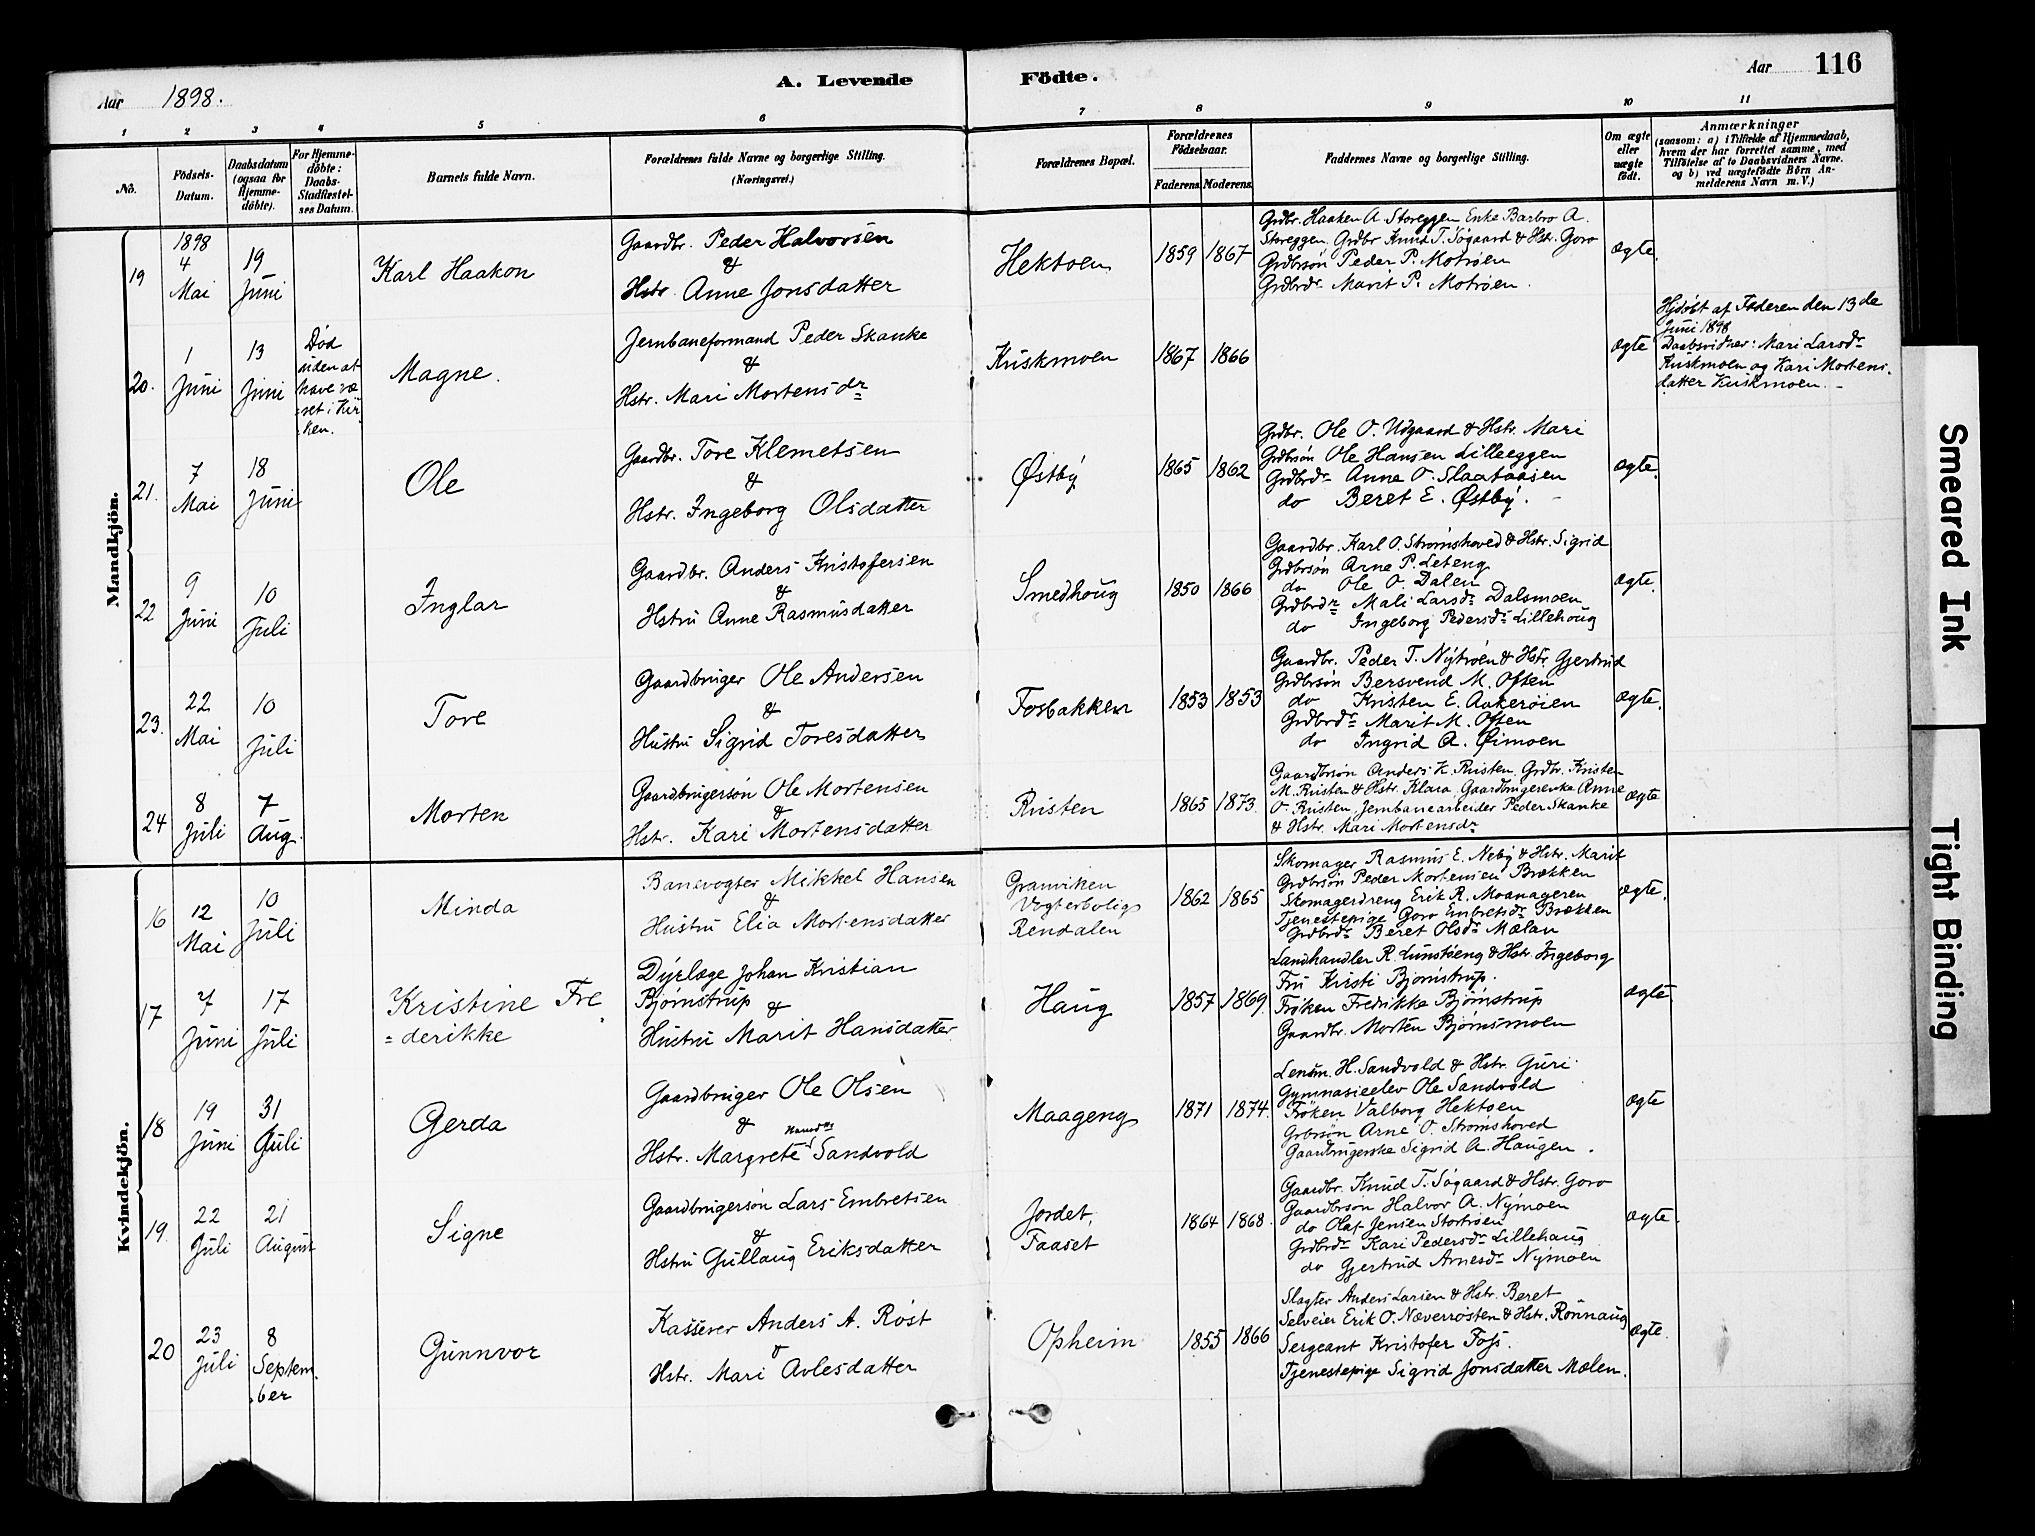 Aar 1898.
A. Levende Födte.
Aar 116
1 2 3 4 5 6 7 8 9 10 11
No.
Födsels-Datum.
Daabsdatum (ogsaa for Hjemme-döbte).
For Hjemme-döbte: Daabs-Stadfæstel-ses Datum.
Barnets fulde Navn.
Forældrenes fulde Navne og borgerlige Stilling. (Næringsvei.)
Forældrenes Bopæl.
Forældrenes Födselsaar.
Faderens. Moderens.
Faddernes Navne og borgerlige Stilling.
Om ægte eller uægte födt.
Anmærkninger
(saasom: a) i Tilfælde af Hjemmedaab,
hvem der har forrettet samme, med
Tilföielse af to Daabsvidners Navne.
og b) ved uægtefödte Börn An-
melderens Navn m. V.)
Mandkjön.
19
1898
4 Mai
19 Juni
Karl Haakon
Gaardbr. Peder Halvorsen
&
Hstr. Anne Jonsdatter
Hektoen
1859 1867
Grdbr. Haaken A. Storeggen Enke Barbro A.
Storeggen. Grdbr Knud T. Søgaard & Hstr. Goro
Grdbrsön Peder P. Motrøen
Grdbrdr Marit P. Motrøen.
ægte.
20.
1 Juni
13 Juni
Død
siden at
have væ
=ret i Kir
=ken.
Magne.
Jernbaneformand Peder Skanke
&
Hstr. Mari Mortensdr
Kuskmoen
1867 1866
ægte
Hjdöbt af Faderen den 13de
Juni 1898
Daabsvidner: Mari Larsdr
Kuskmoen og Kari Mortens-
datter Kuskmoen. -
21.
7 Mai
18 Juni
Ole
Gaardbr. Tore Klemetsen
&
Hstr. Ingeborg Olsdatter
Østby
1865 1862
Grdbr. Ole O. Udgaard & Hstr. Mari
Grdbrsön Ole Hansen Lilleeggen
Grdbrdr Anne O. Slaataasen
do Beret E. Østby. -
ægte.
22
9 Juni
10 Juli
Inglar
Gaardbr. Anders Kristofersen
&
Hstru Anne Rasmusdatter
Smedhoug
1850 1866
Gaardbr. Karl O. Strømshoved & Hstr. Sigrid
Grdbrsön Arne P. Leteng
do Ole O. Dalen
Grdbrdr Mali Larsdr Dalsmoen
do Ingeborg Pedersdr Lillehoug
ægte.
23.
22 Mai
10 Juli
Tore
Gaardbruger Ole Andersen
&
Hustru Sigrid Toresdatter
Fosbakken
1853 1853
Gaardbr. Peder T. Nytrøen & Hstr. Gjertrud
Grdbrsön Bersvend M. Often
do Kristen E. Aakerøien
Grdbrdr Marit M. Often
do Ingrid A. Øimoen
ægte.
24
8 Juli
7 Aug.
Morten
Gaardbrugersøn Ole Mortensen
&
Hstr. Kari Mortensdatter
Rusten
1865 1873.
Gaardbrsön Anders K. Rusten, Grdbr. Kristen
M. Rusten & Hstr. Klara, Gaardbrugerenke Anne
O. Rusten, Jernbanearbeider Peder Skanke
& Hstr. Mari Mortensdr
ægte
Kvindekjön.
16
12 Mai
10 Juli
Minda
Banevogter Mikkel Hansen
&
Hustru Elia Mortensdatter
Granviken
Vogterbolig
Rendalen
1862 1865
Skomager Rasmus E. Neby & Hstr. Marit
Grdbrsön Peder Mortensen Brækken
Skomagerdreng Erik R. Moanageren
Tjenestepige Goro Embretsdr Brækken
Grdbrdr Beret Olsdr Mælan
ægte.
17
7 Juni
17 Juli
Kristine Fre
=derikke
Dyrlæge Johan Kristian
Bjørnstrup &
Hustru Marit Hansdatter
Haug
1857 1869.
Landhandler R. Lunstæng & Hstr. Ingeborg
Fru Kristi Bjørnstrup.
Frøken Fredrikke Bjørnstrup
Gaardbr. Morten Bjørnsmoen
ægte
18
19 Juni
31 Juli
Gerda
Gaardbruger Ole Olsen
&
Hstr. Margrete Hansdtr Sandvold
Maageng
1871 1874.
Lensm. H. Sandvold & Hstr. Guri
Gymnasieelev Ole Sandvold
Frøken Valborg Hektoen
Grbrsön Arne O. Strømshoved
Gaardbrugerske Sigrid A. Haugen.
ægte
19.
22 Juli
21 August
Signe
Gaardbrugersøn Lars Embretsen
&
Hstru Gullaug Eriksdatter
Jordet,
Faaset
1864 1868.
Gaardbr. Knud T. Søgaard & Hstr. Goro
Gaardbrsön Halvor A. Nymoen
do Olaf Jensen Stortrøen
Grdbrdr Kari Pedersdr Lillehaug
do Gjertrud Arnesdr Nymoen
ægte.
20
23 Juli
8 Septem
=ber
Gunnvor
Kasserer Anders A. Røst
&
Hstr. Mari Avlesdatter
Opheim
1855 1866
Slagter Anders Larsen & Hstr. Beret
Selveier Erik O. Næverrøsten & Hstr. Rønnaug
Sergeant Kristofer Foss.
Tjenestepige Sigrid Jonsdatter Mælen.
ægte.
Smeared Ink
Tight Binding